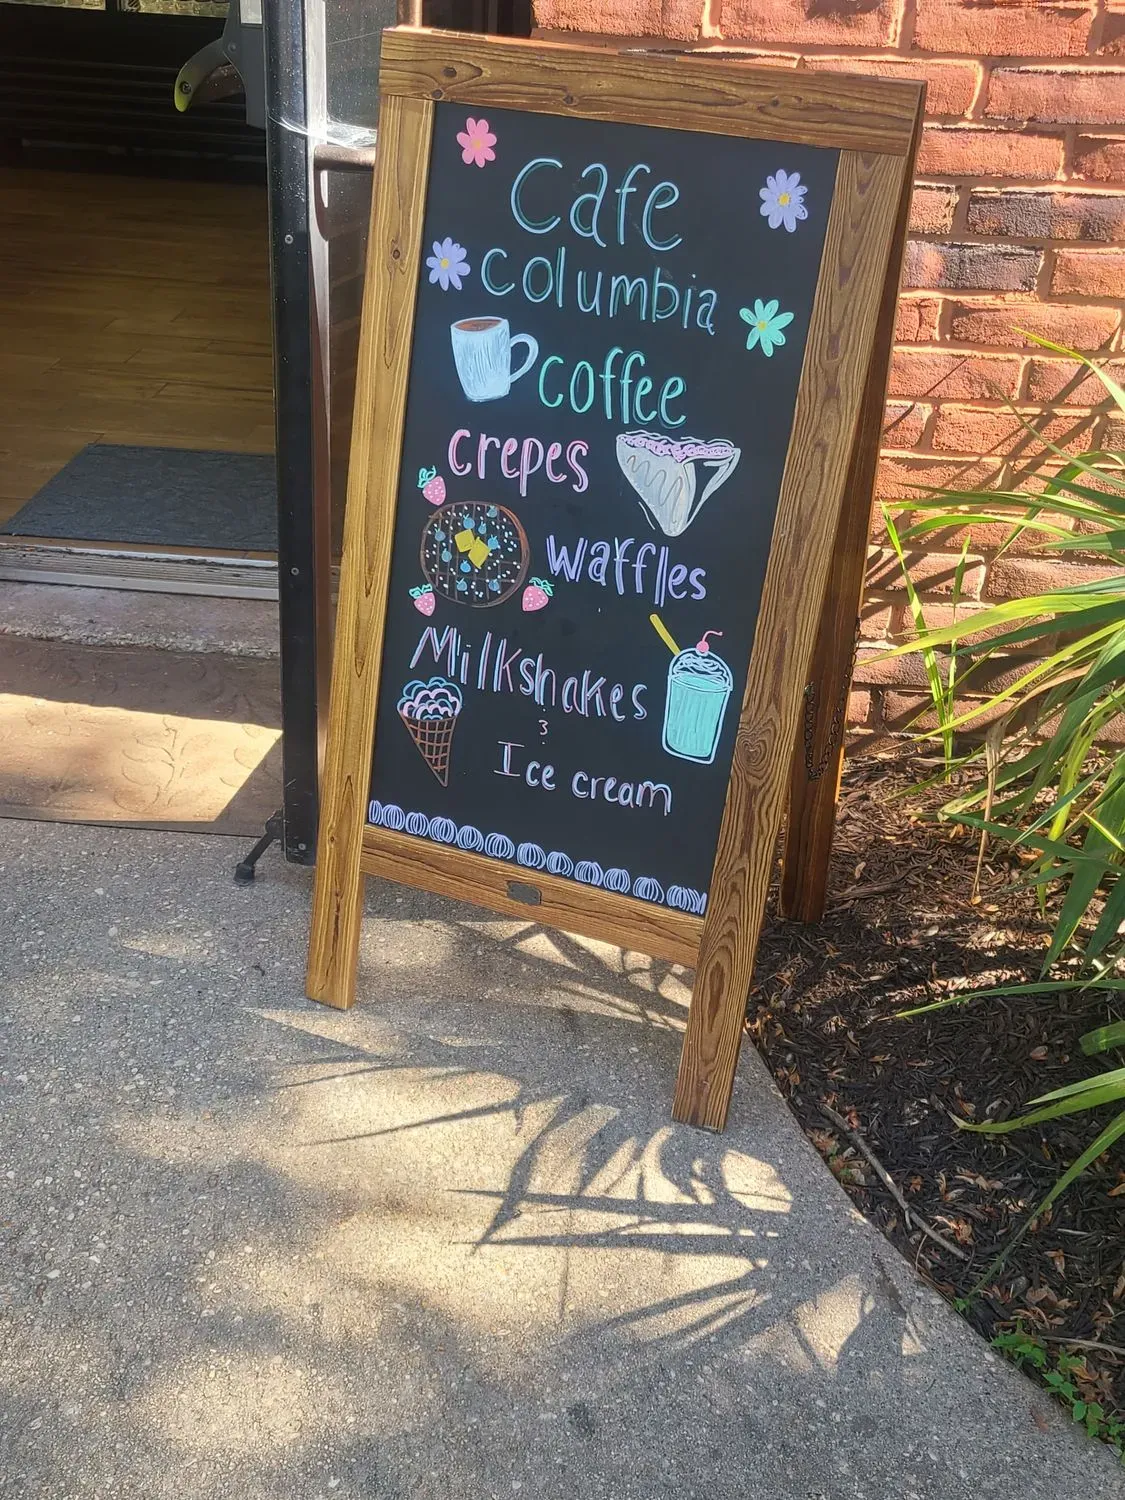 Cafe
Columbia
coffee
crepes
waffles
Milkshakes
&
Ice cream